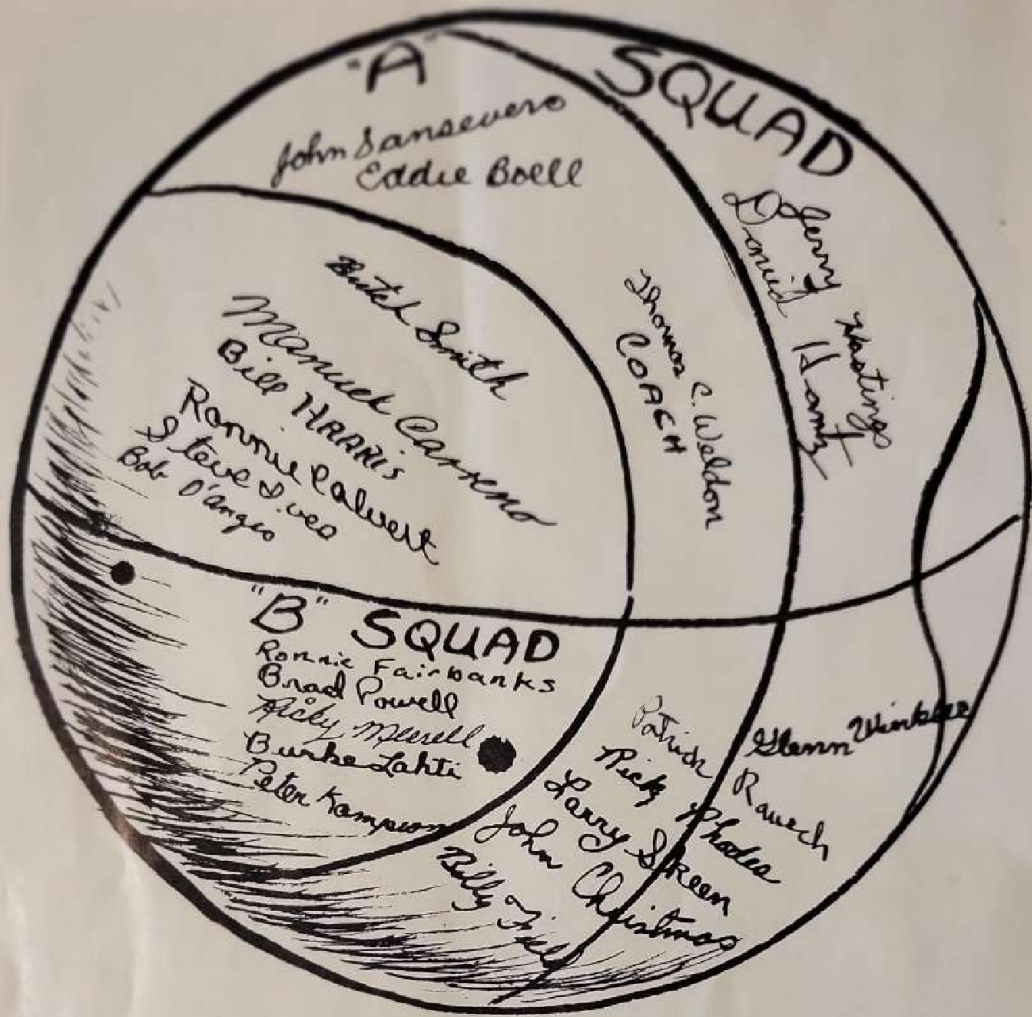 "A" SQUAD
John Sansevero
Eddie Boell
Jerry Hastings
David Hantz
Thomas C. Weldon
COACH
Butch Smith
Manuel Carreno
Bill HARRIS
Ronnie Calvert
Steve Ives
Bob D'Angio
"B" SQUAD
Ronnie Fairbanks
Brad Powell
Ricky Merrell
Burke Lahti
Peter Kampson
Glenn Winkler
Patrick Rauech
Ricky Rhodes
Larry Skeen
John Christmas
Billy